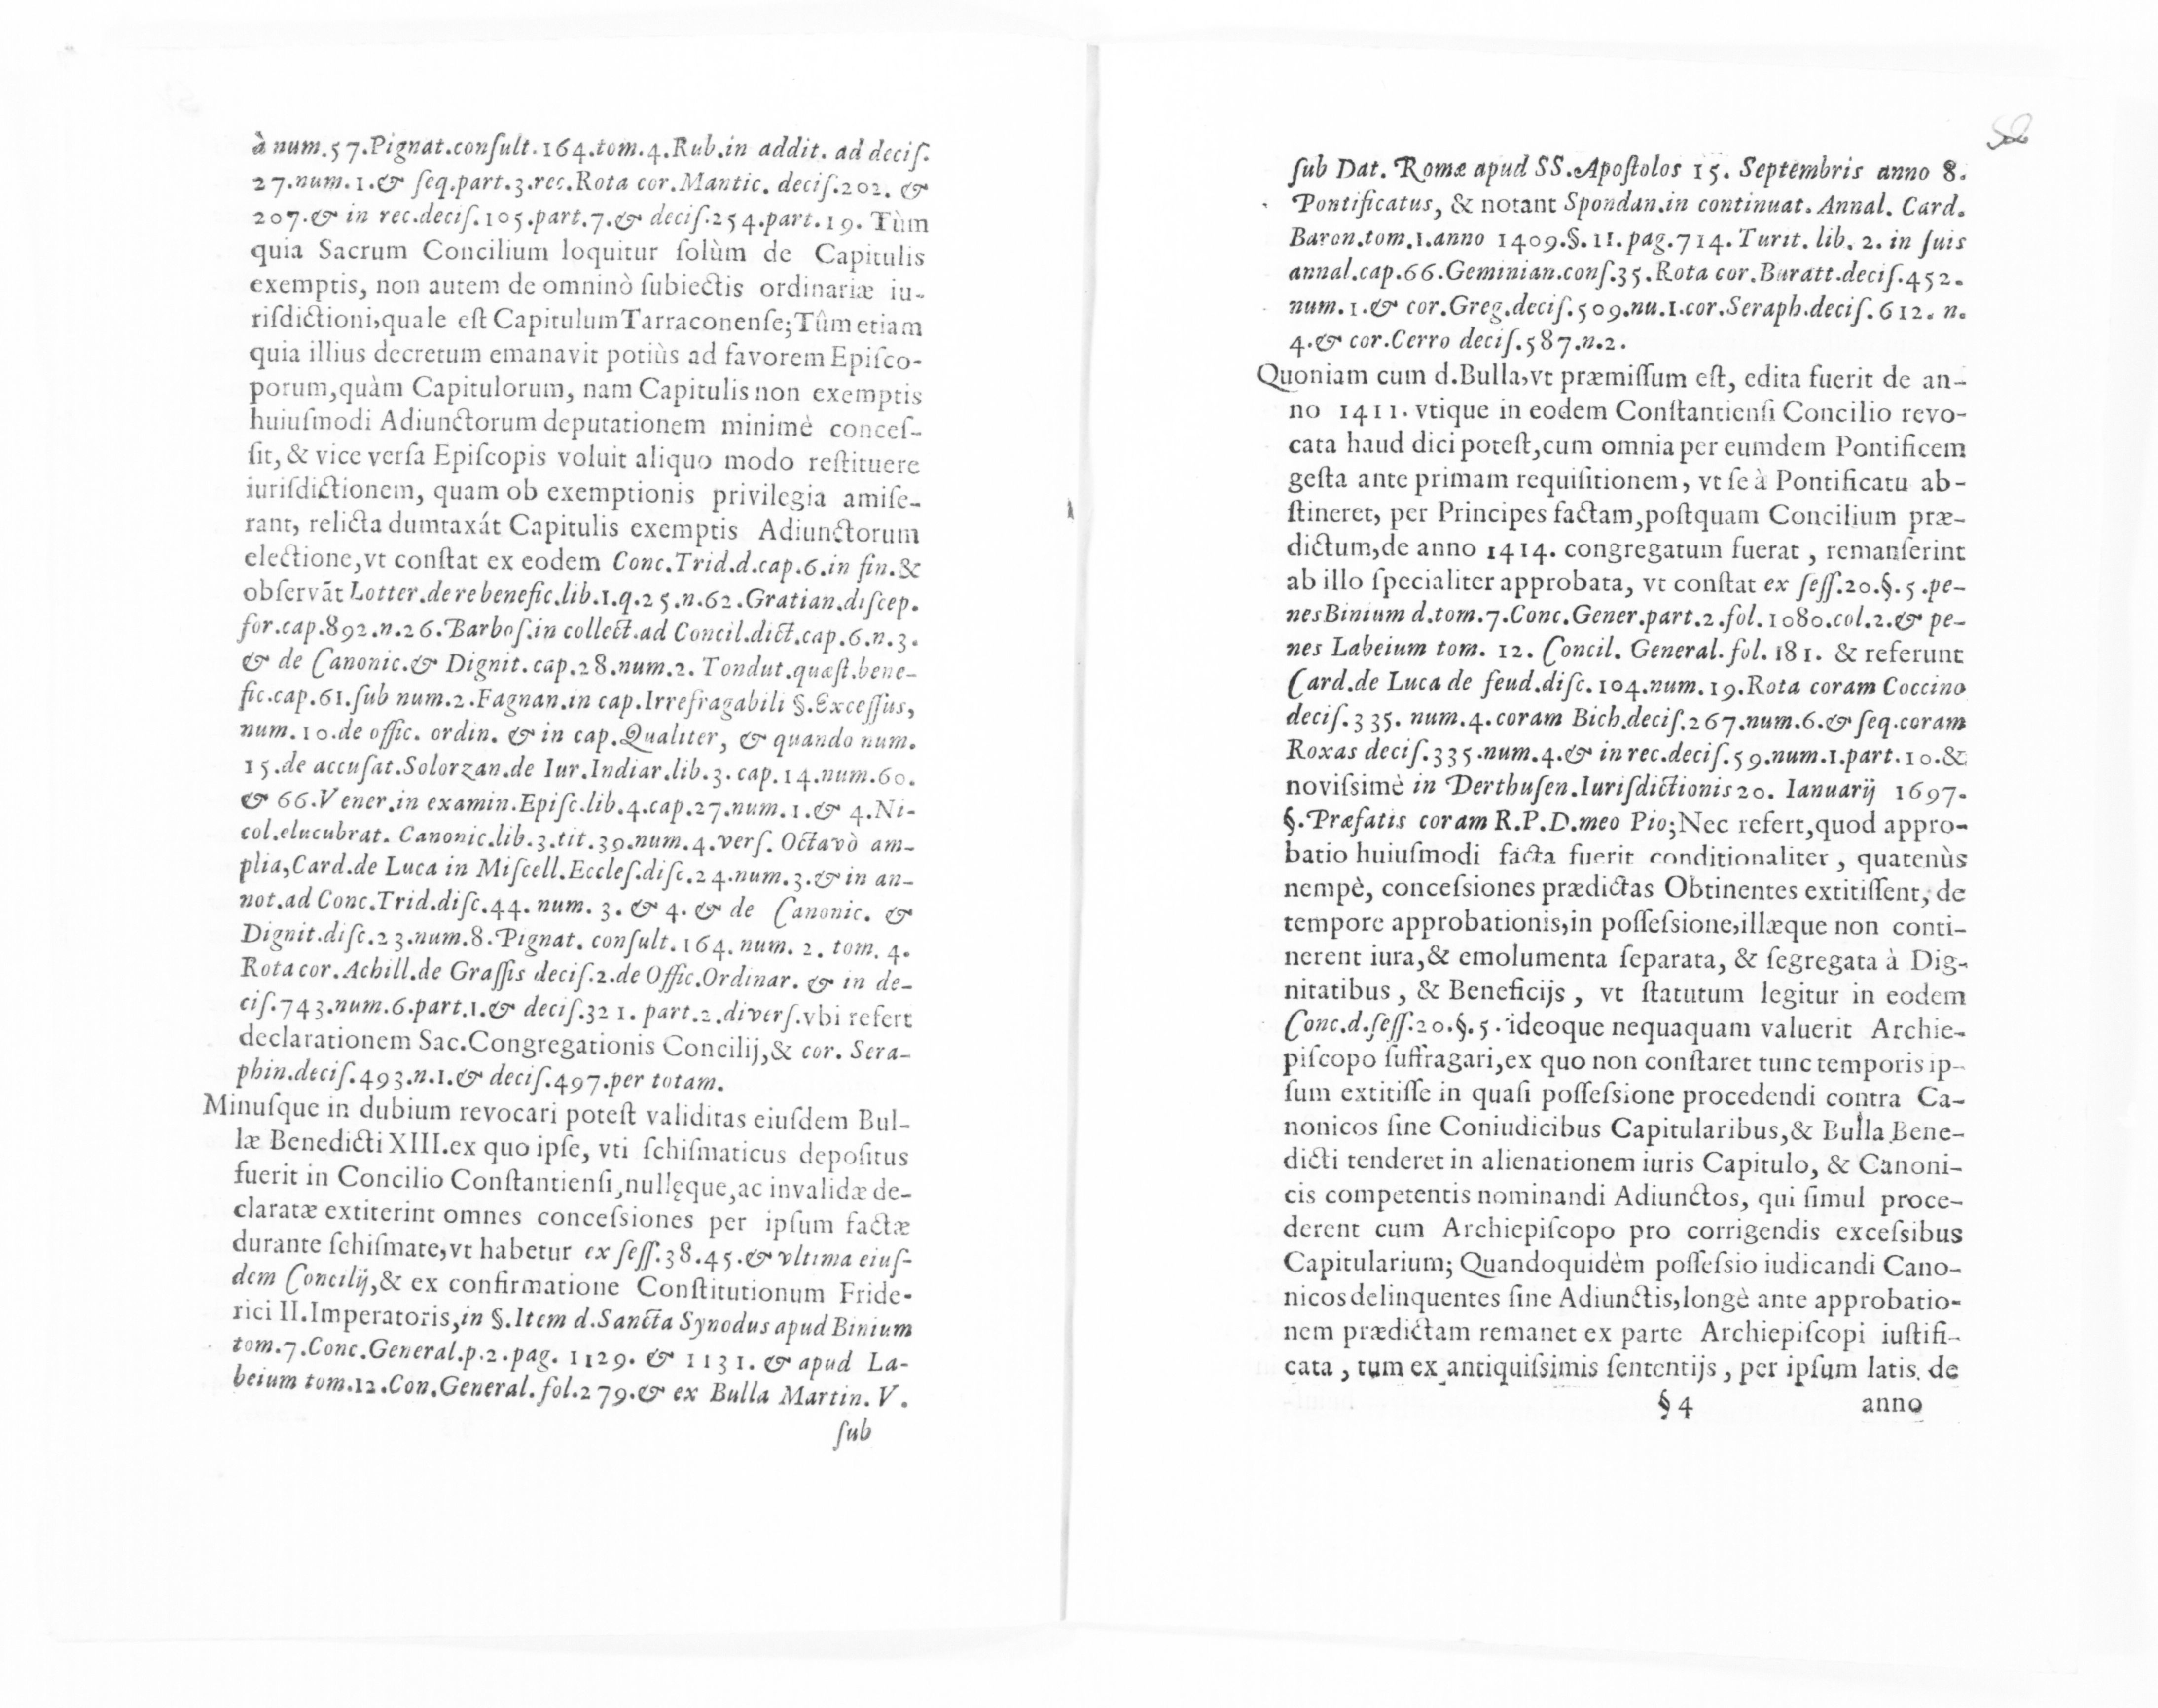 à num.57.Pignat.conſult.164.tom.4.Rub.in addit. ad deciſ.
27.num.1.& ſeq.part.3.rec.Rota cor.Mantic. deciſ.202. &
207.& in rec.deciſ.105.part.7.& deciſ.254.part.19. Tùm
quia Sacrum Concilium loquitur ſolùm de Capitulis
exemptis, non autem de omninò ſubiectis ordinariæ iu-
riſdictioni,quale eſt Capitulum Tarraconenſe;Tûm etiam
quia illius decretum emanavit potiùs ad favorem Epiſco-
porum,quàm Capitulorum, nam Capitulis non exemptis
huiuſmodi Adiunctorum deputationem minimè conceſ-
ſit, & vice verſa Epiſcopis voluit aliquo modo reſtituere
iuriſdictionem, quam ob exemptionis privilegia amiſe-
rant, relicta dumtaxát Capitulis exemptis Adiunctorum
electione,vt conſtat ex eodem Conc.Trid.d.cap.6.in fin.&
obſervãt Lotter.de re benefic.lib.1.q.25.n.62.Gratian.diſcep.
for.cap.892.n.26.Barboſ.in collect.ad Concil.dict.cap.6.n.3.
& de Canonic.& Dignit.cap.28.num.2. Tondut.quæſt.bene-
fic.cap.61.ſub num.2.Fagnan.in cap.Irrefragabili §.Exceſſus,
num.10.de offic. ordin. & in cap.Qualiter, & quando num.
15.de accuſat.Solorzan.de Iur.Indiar.lib.3. cap.14.num.60.
& 66.Vener.in examin.Epiſc.lib.4.cap.27.num.1.& 4.Ni-
col.elucubrat. Canonic.lib.3.tit.39.num.4.verſ. Octavò am-
plia,Card.de Luca in Miſcell.Eccleſ.diſc.24.num.3.& in an-
not.ad Conc.Trid.diſc.44. num. 3. & 4. & de Canonic. &
Dignit.diſc.23.num.8.Pignat. conſult.164. num. 2. tom. 4.
Rota cor.Achill.de Graſſis deciſ.2.de Offic.Ordinar. & in de-
ciſ.743.num.6.part.1.& deciſ.321. part.2.diverſ.vbi refert
declarationem Sac.Congregationis Concilij,& cor. Sera-
phin.deciſ.493.n.1.& deciſ.497.per totam.
Minuſque in dubium revocari poteſt validitas eiuſdem Bul-
læ Benedicti XIII.ex quo ipſe, vti ſchiſmaticus depoſitus
fuerit in Concilio Conſtantienſi,nullęque,ac invalidæ de-
claratæ extiterint omnes conceſsiones per ipſum factæ
durante ſchiſmate,vt habetur ex ſeſſ.38.45.& vltima eiuſ-
dem Concilij,& ex confirmatione Conſtitutionum Fride-
rici II.Imperatoris,in §.Item d.Sancta Synodus apud Binium
tom.7.Conc.General.p.2.pag. 1129. & 1131. & apud La-
beium tom.12.Con.General.fol.279.& ex Bulla Martin. V.
ſub
ſub Dat. Romæ apud SS.Apoſtolos 15. Septembris anno 8.
Pontificatus, & notant Spondan.in continuat. Annal. Card.
Baron.tom.1.anno 1409.§.11.pag.714.Turit. lib. 2. in ſuis
annal.cap.66.Geminian.conſ.35.Rota cor.Buratt.deciſ.452.
num.1.& cor.Greg.deciſ.509.nu.1.cor.Seraph.deciſ.612. n.
4.& cor.Cerro deciſ.587.n.2.
Quoniam cum d.Bulla,vt præmiſſum eſt, edita fuerit de an-
no 1411. vtique in eodem Conſtantienſi Concilio revo-
cata haud dici poteſt,cum omnia per eumdem Pontificem
geſta ante primam requiſitionem, vt ſe à Pontificatu ab-
ſtineret, per Principes factam,poſtquam Concilium præ-
dictum,de anno 1414. congregatum fuerat , remanſerint
ab illo ſpecialiter approbata, vt conſtat ex ſeſſ.20.§.5.pe-
nes Binium d.tom.7.Conc.Gener.part.2.fol.1080.col.2.& pe-
nes Labeium tom. 12. Concil. General. fol. 181. & referunt
Card.de Luca de feud.diſc.104.num.19.Rota coram Coccino
deciſ.335. num.4.coram Bich.deciſ.267.num.6.& ſeq.coram
Roxas deciſ.335.num.4.& in rec.deciſ.59.num.1.part.10.&
noviſsimè in Derthuſen.Iuriſdictionis 20. Ianuarij 1697.
§.Præfatis coram R.P.D.meo Pio;Nec refert,quod appro-
batio huiuſmodi facta fuerit conditionaliter , quatenùs
nempè, conceſsiones prædictas Obtinentes extitiſſent, de
tempore approbationis,in poſſeſsione,illæque non conti-
nerent iura,& emolumenta ſeparata, & ſegregata à Dig-
nitatibus , & Beneficijs , vt ſtatutum legitur in eodem
Conc.d.ſeſſ.20.§.5. ideoque nequaquam valuerit Archie-
piſcopo ſuffragari,ex quo non conſtaret tunc temporis ip-
ſum extitiſſe in quaſi poſſeſsione procedendi contra Ca-
nonicos ſine Coniudicibus Capitularibus,& Bulla Bene-
dicti tenderet in alienationem iuris Capitulo, & Canoni-
cis competentis nominandi Adiunctos, qui ſimul proce-
derent cum Archiepiſcopo pro corrigendis exceſsibus
Capitularium; Quandoquidèm poſſeſsio iudicandi Cano-
nicos delinquentes ſine Adiunctis,longè ante approbatio-
nem prædictam remanet ex parte Archiepiſcopi iuſtifi-
cata , tum ex antiquiſsimis ſententijs , per ipſum latis de
§ 4 anno